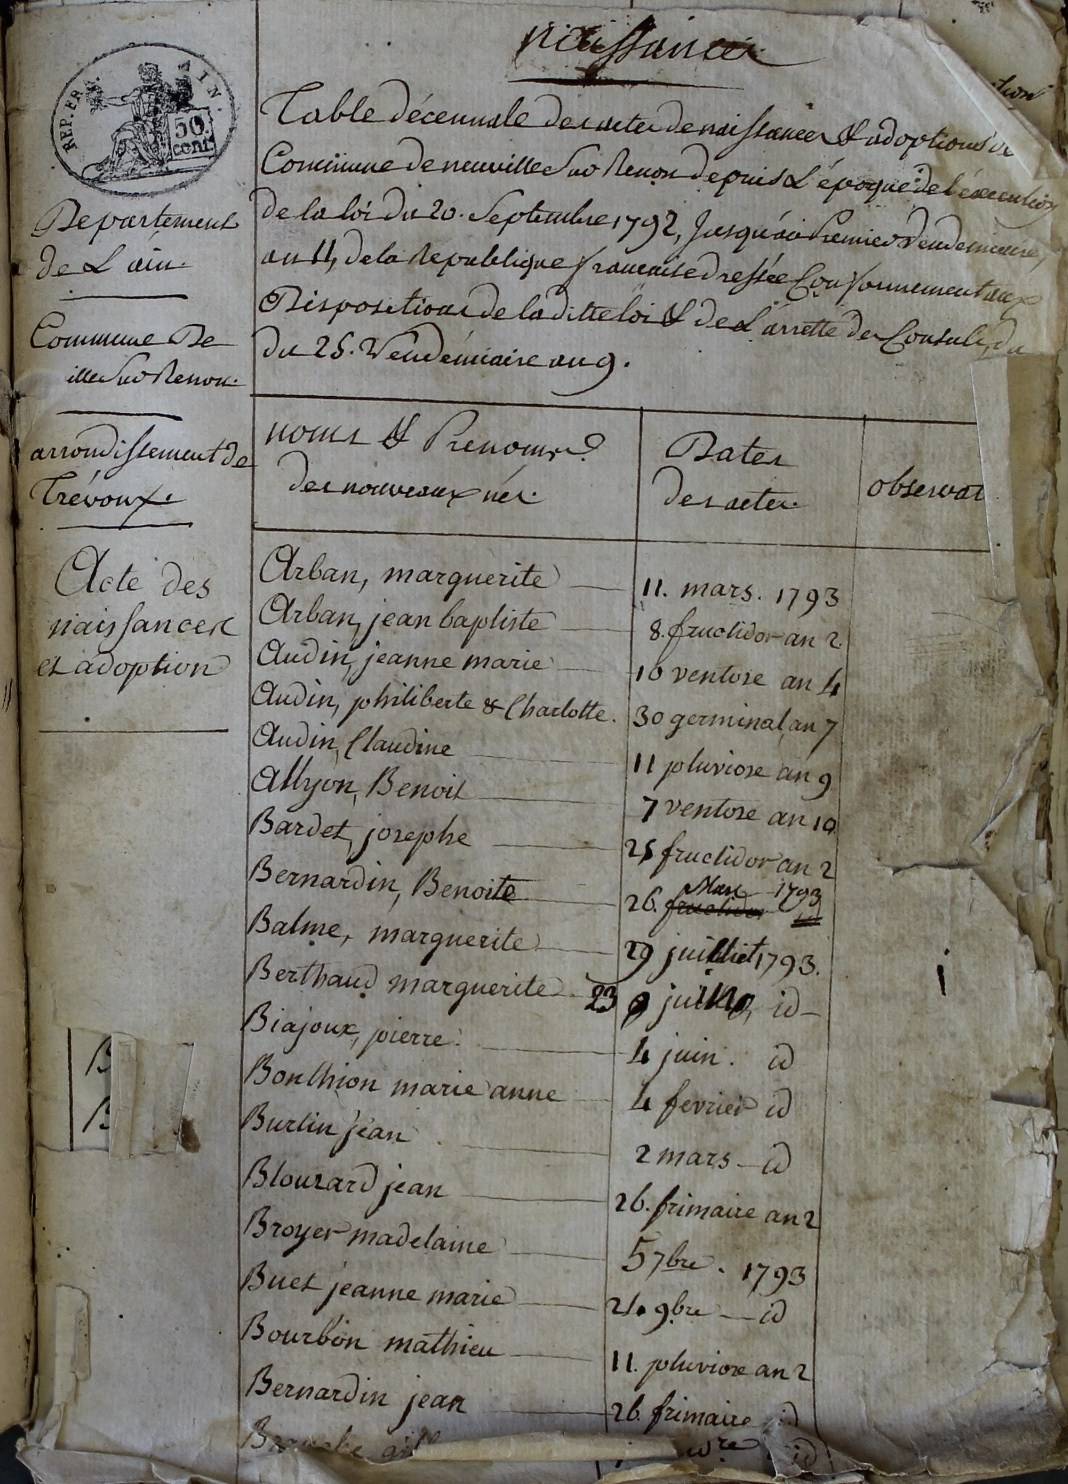 naissances
REP. FRA.
AIN.
50.
cent.
Table décennale des actes de naissances & adoptions de
Commune de neuville Sur Renon depuis L'époque de l'éxecution
de la loi du 20. Septembre 1792, Jusqu'au Premier Vendemiaire,
an 11, de la Republique francaise dressée Conformement aux
Dispositions de la ditte loi & de L'arretté des Consuls, du
du 25. Vendémiaire an 9.
Departement
de L'ain.
Commune De
ille Sur Renon.
arrondissement de
Trévoux.
Acte des
naissances
et adoption
noms & Prenoms
des nouveaux nés.
Dates
des actes.
observat
Arban, marguerite 11. mars. 1793
Arban, jean baptiste 8. fructidor an 2
Audin, jeanne marie 10 ventose an 4
Audin, philiberte & Charlotte. 30 germinal an 7
Audin, Claudine 11 pluviose an 9
Allyon, Benoit 7 ventose an 10
Bardet, josephe 25 fructidor an 2
Bernardin, Benoite 26. fructidor Mars 1793
Balme, marguerite 29 juillet 1793.
Berthaud marguerite 23 id
Biajoux, pierre 4 juin. id
Bonthion marie anne 4 fevrier id
Burtin jean 2 mars id
Blouzard jean 26. frimaire an 2
Broyer madelaine 5 7bre. 1793
Buet jeanne marie 24. 9bre id
Bourbon mathieu 11. pluviose an 2
Bernardin jean 26. frimaire id
id
B
B